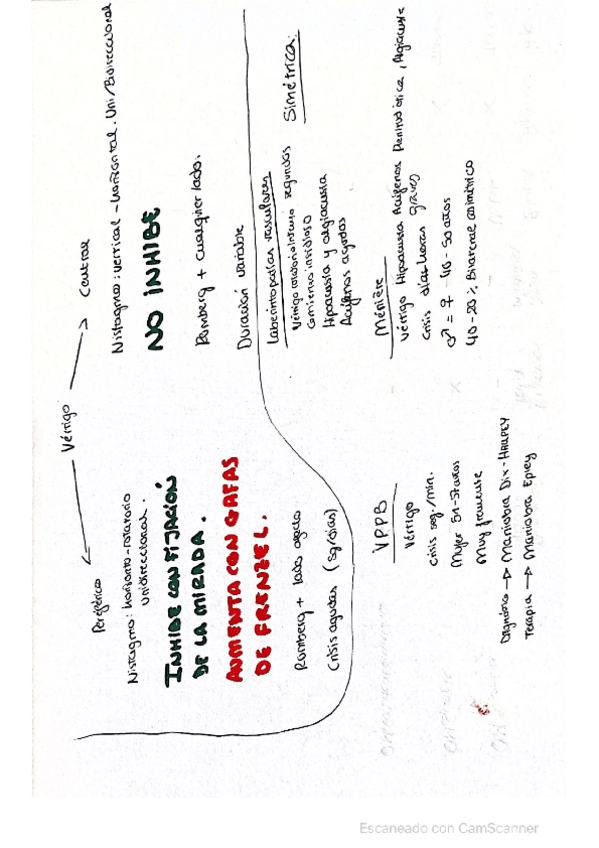 Vértigo
Periférico
Nistagmo: horizonto-rotatorio
Unidireccional.
INHIBE CON FIJACIÓN
DE LA MIRADA.
AUMENTA CON GAFAS
DE FRENZEL.
Romberg + lado
Crisis agudas (sg/días)
Central
Nistagmo: vertical-horizontal. Uni/Bidireccional
NO INHIBE
Romberg + cualquier lado.
Duración variable
VPPB
Vértigo
crisis seg./min.
Mujer 51-57años
Muy frecuente
Diagnóstico → Maniobra Dix-HALLPEY
Terapia → Maniobra Epley
Laberintopatías vasculares
Vértigo rotatorio intenso segundos
comienzo insidioso
Hipoacusia y algiacusia
Acúfenos agudos
Simétrica.
Ménière
Vértigo Hipoacusia Acúfenos Plenitud ótica, Algiacusia
Crisis días-horas graves
♂ = ♀ 40-50 años
40-20% Bilateral asimétrico
Escaneado con CamScanner